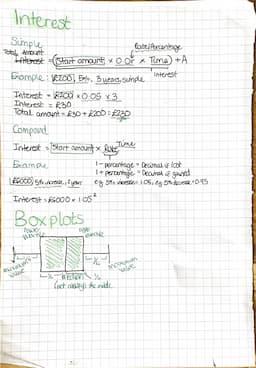 Interest
Simple
Rate/Percentage
Total amount
Interest = (Start amount × 0.0r × Time) + A
Interest
Example: £200, 5%, 3 years, simple
Interest = £200 × 0.05 × 3
Interest = £30
Total amount = £30 + £200 = £230
Compound
Interest = Start amount × Rate^Time
Example
1 - percentage = Decimal if lost
1 + percentage = Decimal if gained
£6000, 5% increase, 2 years
eg 5% increase = 1.05, eg 5% decrease = 0.95
Interest = £6000 × 1.05²
Boxplots
lower quartile
upper quartile
minimum value
maximum value
median
(not always) the middle